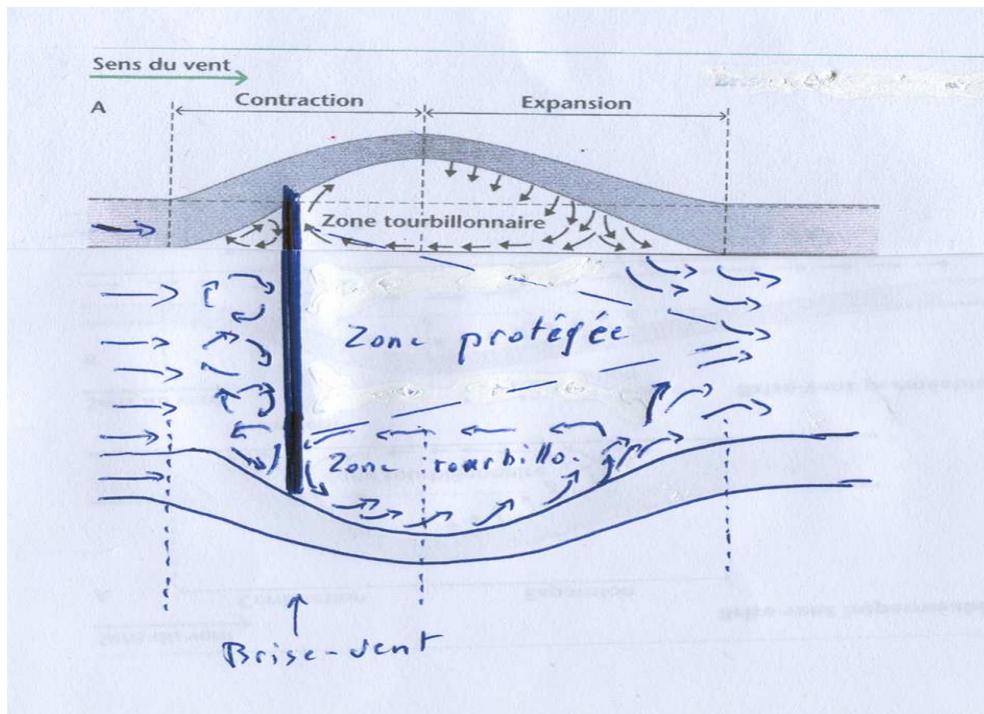 Sens du vent
A
Contraction
Expansion
Zone tourbillonnaire
Zone protégée
Zone tourbillo.
Brise-vent